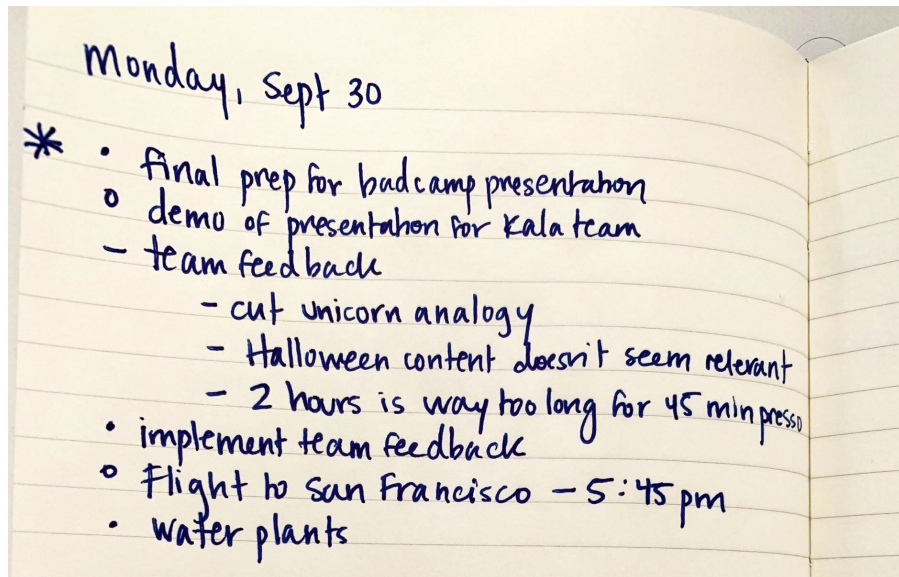 Monday, Sept 30
* • final prep for badcamp presentation
o demo of presentation for Kala team
- team feedback
- cut unicorn analogy
- Halloween content doesn't seem relevant
- 2 hours is way too long for 45 min presso
• implement team feedback
o Flight to San Francisco - 5:45 pm
• water plants